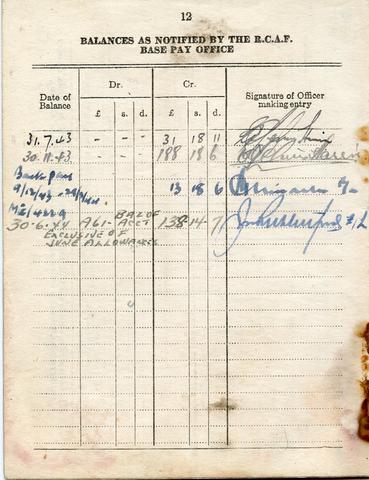 12
BALANCES AS NOTIFIED BY THE R.C.A.F.
BASE PAY OFFICE
Date of Balance Dr. Cr. Signature of Officer making entry
£ s. d. £ s. d.
31.7.43 - - - 31 18 11
30.11.43 - - - 188 18 6
Back pay
9/12/43 - 13 18 6
30-6-44 A61- BAL OF ACCT 138-14-7
EXCLUSIVE OF
JUNE ALLOWANCES